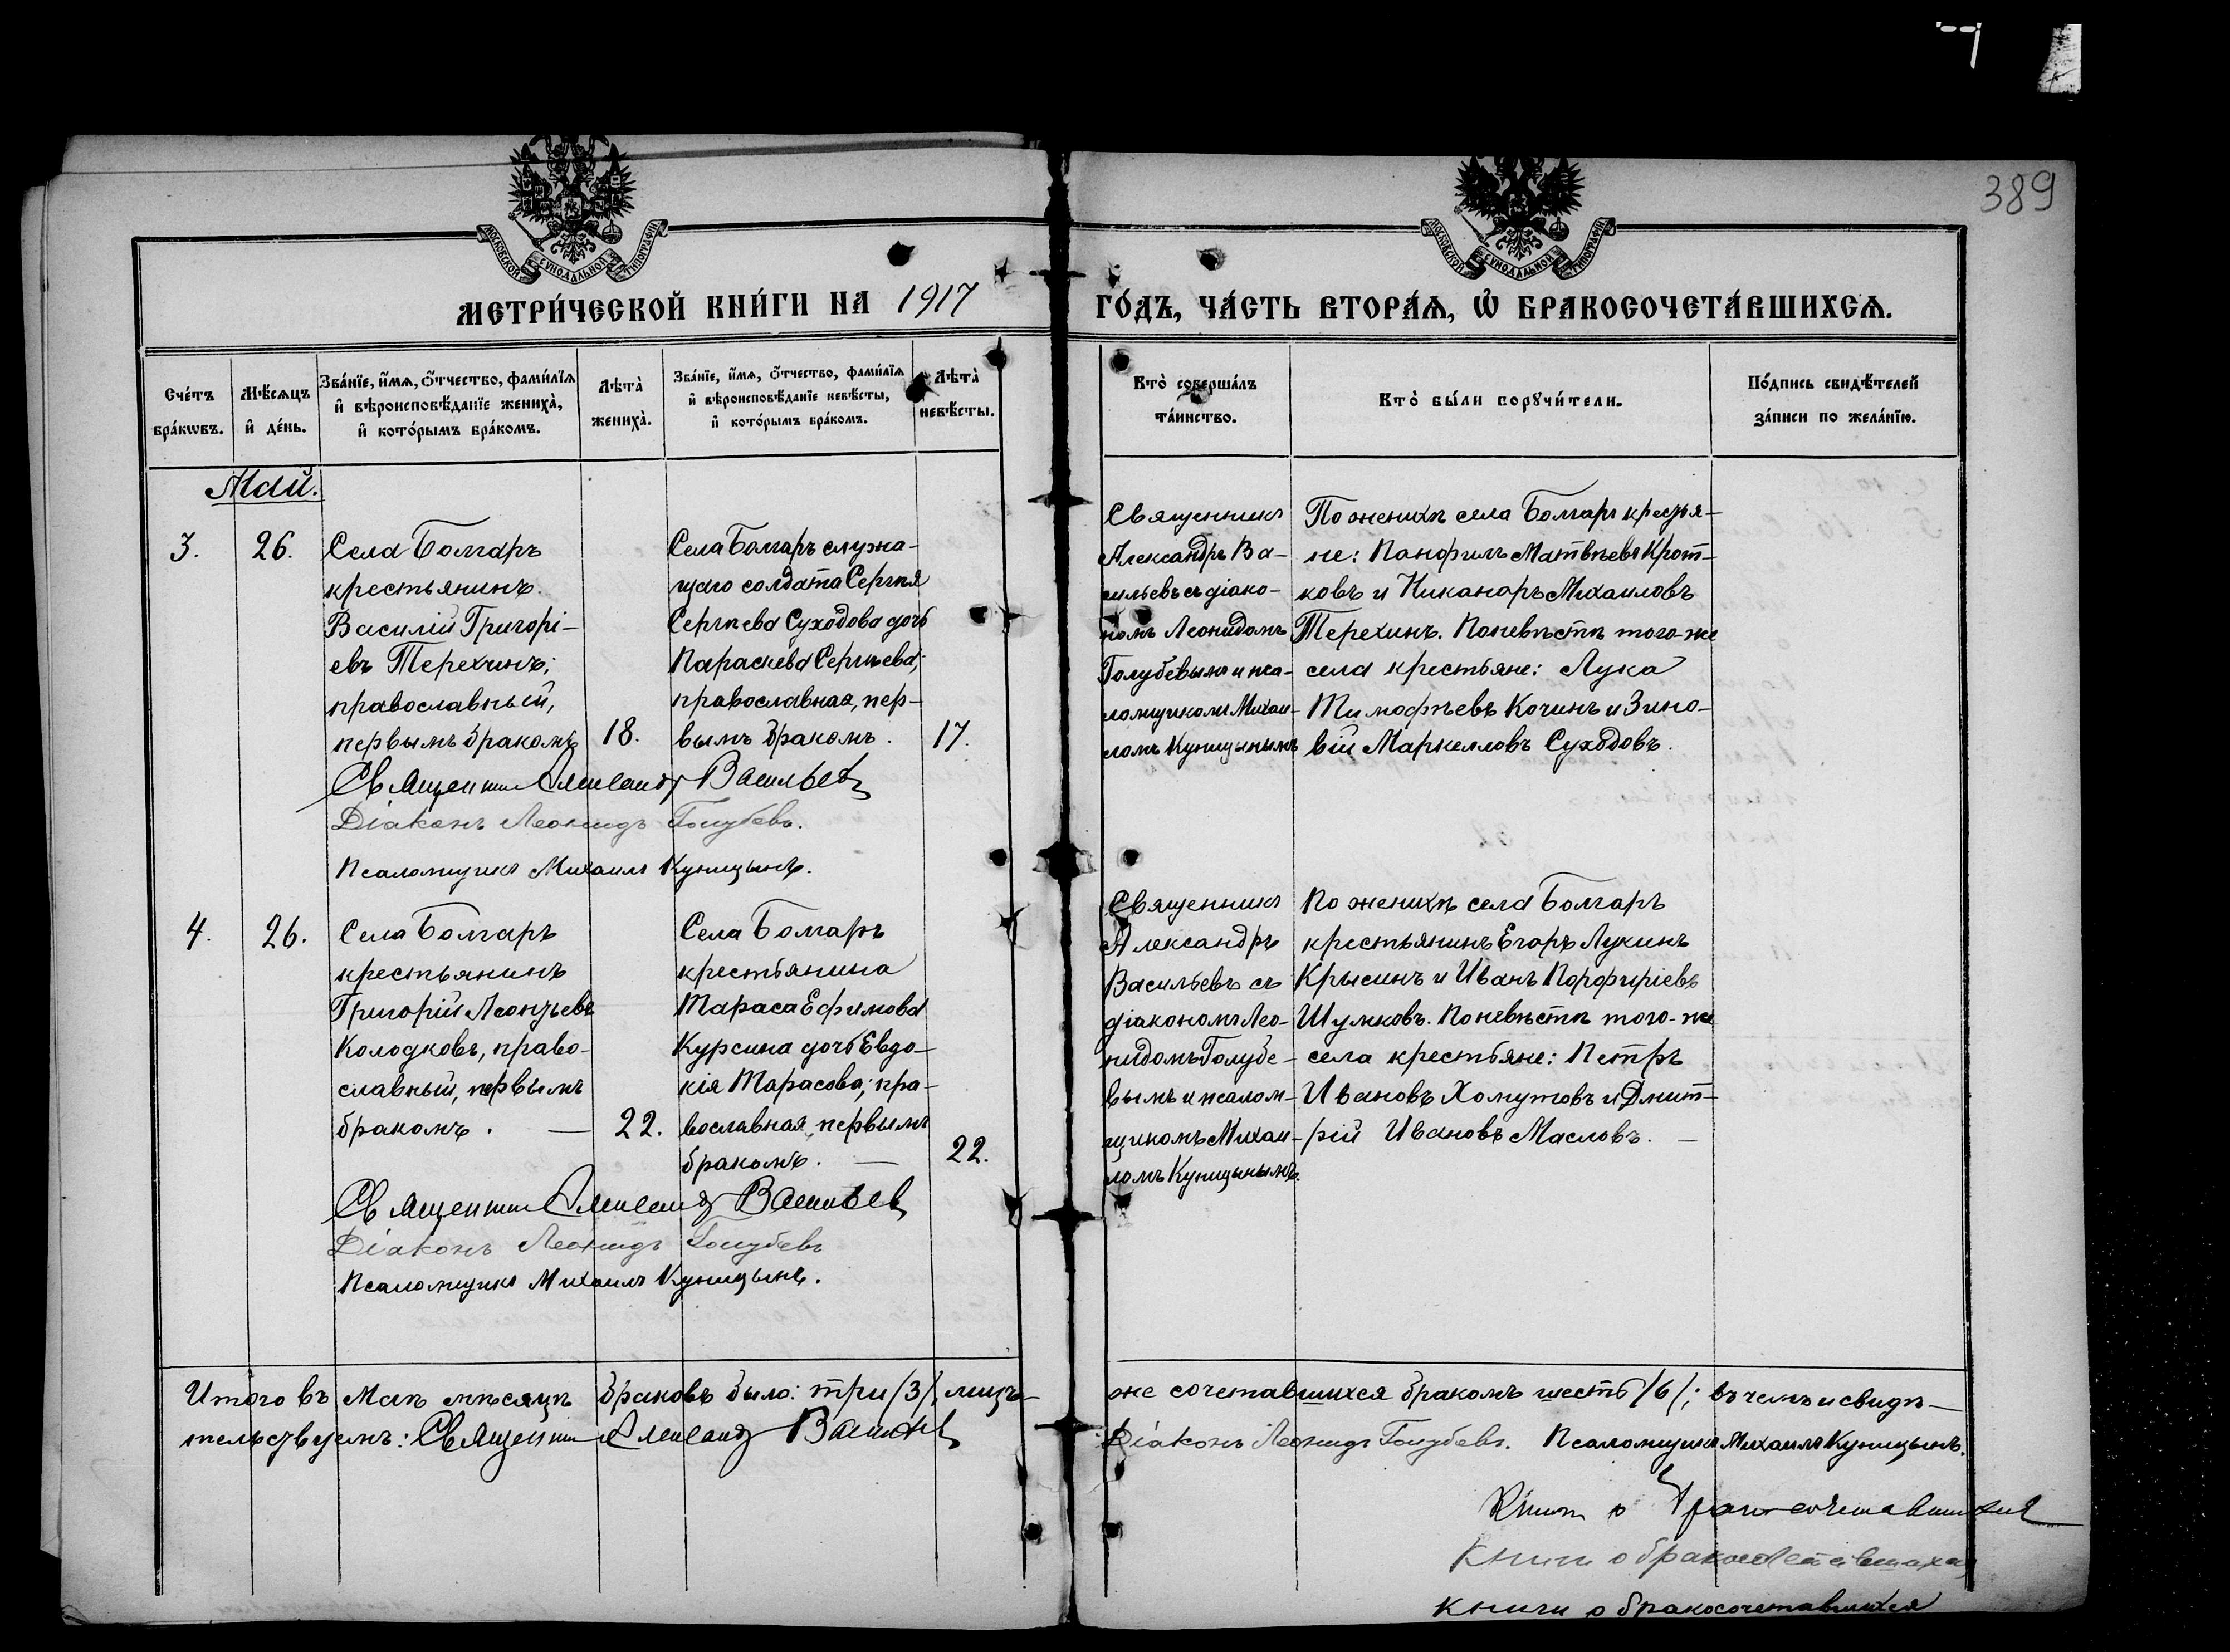 389
МОСКОВСКОЙ СѴНОДАЛЬНОЙ ТИПОГРАФІИ
МОСКОВСКОЙ СѴНОДАЛЬНОЙ ТИПОГРАФІИ
МЕТРИ́ЧЕСКОЙ КНИ́ГИ НА 1917
ГО́ДЪ, ЧА́СТЬ ВТОРА́Ѧ, Ѽ БРАКОСОЧЕТА́ВШИХСѦ.
Сче́тъ
бра́кѡвъ.
Мѣ́сѧцъ
и҆ де́нь.
Зва́нїе, и҆́мѧ, ѻ҆́тчество, фами́лїѧ
и҆ вѣроисповѣ́данїе жениха̀,
и҆ кото́рымъ бра́комъ.
Лѣта̀
жениха̀.
Зва́нїе, и҆́мѧ, ѻ҆́тчество, фами́лїѧ
и҆ вѣроисповѣ́данїе невѣ́сты,
и҆ кото́рымъ бра́комъ.
Лѣта̀
невѣ́сты.
Кто̀ соверша́лъ
та́инство.
Кто̀ бы́ли порꙋчи́тели.
По́дпись свидѣ́телей
за́писи по жела́нїю.
Май.
3.
26.
Села Болгаръ
крестьянинъ
Василій Григорі-
евъ Терехинъ;
православный,
первымъ бракомъ
18.
Села Болгаръ служа-
щаго солдата Сергѣя
Сергѣева Суходова дочь
Параскева Сергѣева;
православная, пер-
вымъ бракомъ.
17.
Священникъ
Александръ Ва-
сильевъ съ діако-
номъ Леонидомъ
Голубевымъ и пса-
ломщикомъ Михаи-
ломъ Куницынымъ
По женихѣ села Болгаръ крестья-
не: Панфилъ Матвѣевъ Крот-
ковъ и Никаноръ Михаиловъ
Терехинъ. По невѣстѣ того-же
села крестьяне: Лука
Тимофѣевъ Кочинъ и Зино-
вій Маркелловъ Суходовъ.
Священникъ Александръ Васильевъ
Діаконъ Леонидъ Голубевъ.
Псаломщикъ Михаилъ Куницынъ.
4.
26.
Села Болгаръ
крестьянинъ
Григорій Леонтьевъ
Колодковъ, право-
славный, первымъ
бракомъ. —
22.
Села Болгаръ
крестьянина
Тараса Ефимова
Курсина дочь Евдо-
кія Тарасова; пра-
вославная, первымъ
бракомъ. —
22.
Священникъ
Александръ
Васильевъ съ
діакономъ Лео-
нидомъ Голубе-
вымъ и псалом-
щикомъ Михаи-
ломъ Куницынымъ.
По женихѣ села Болгаръ
крестьянинъ Егоръ Лукинъ
Крысинъ и Иванъ Порфиріевъ
Шумковъ. По невѣстѣ того-же
села крестьяне: Петръ
Ивановъ Хомутовъ и Дмит-
рій Ивановъ Масловъ. —
Священникъ Александръ Васильевъ
Діаконъ Леонидъ Голубевъ
Псаломщикъ Михаилъ Куницынъ.
Итого въ Маѣ мѣсяцѣ браковъ было: три /3/, лицъ-
же сочетавшихся бракомъ шесть /6/; въ чемъ и свидѣ-
тельствуемъ: Священникъ Александръ Васильевъ
Діаконъ Леонидъ Голубевъ. Псаломщикъ Михаилъ Куницынъ.
Книги о бракосочетавшихся
Книги о бракосочетавшихся
Книги о бракосочетавшихся